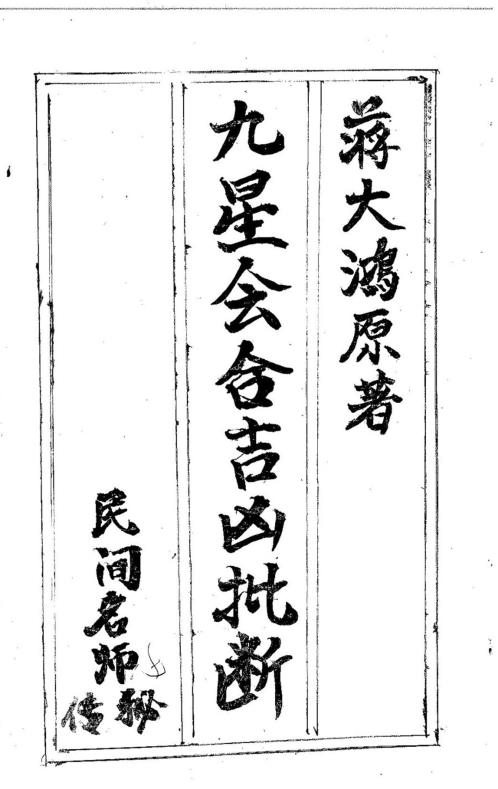 蒋大鸿原著
九星会合吉凶批断
民间名师秘传